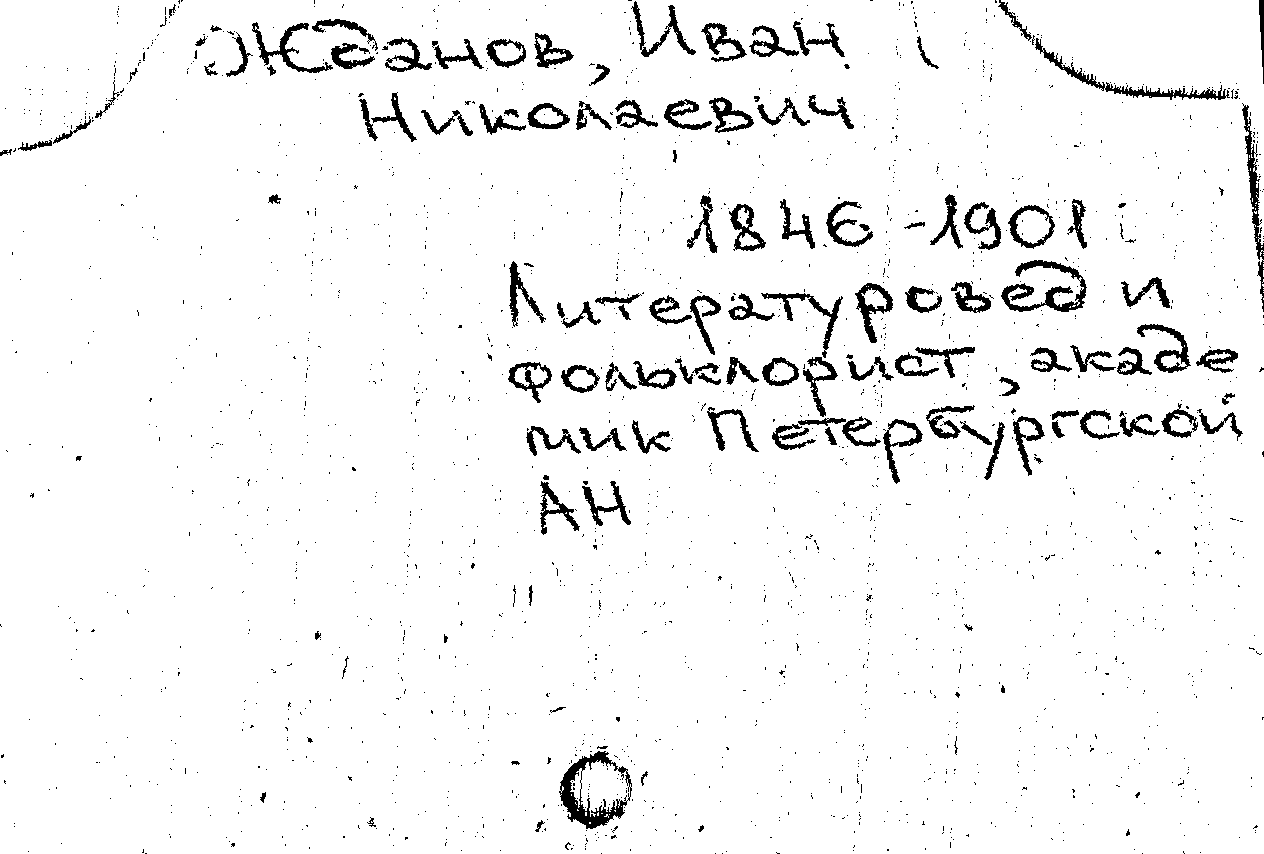 Жданов, Иван
Николаевич
1846-1901
Литературовед и
фольклорист, акаде
мик Петербургской
АН